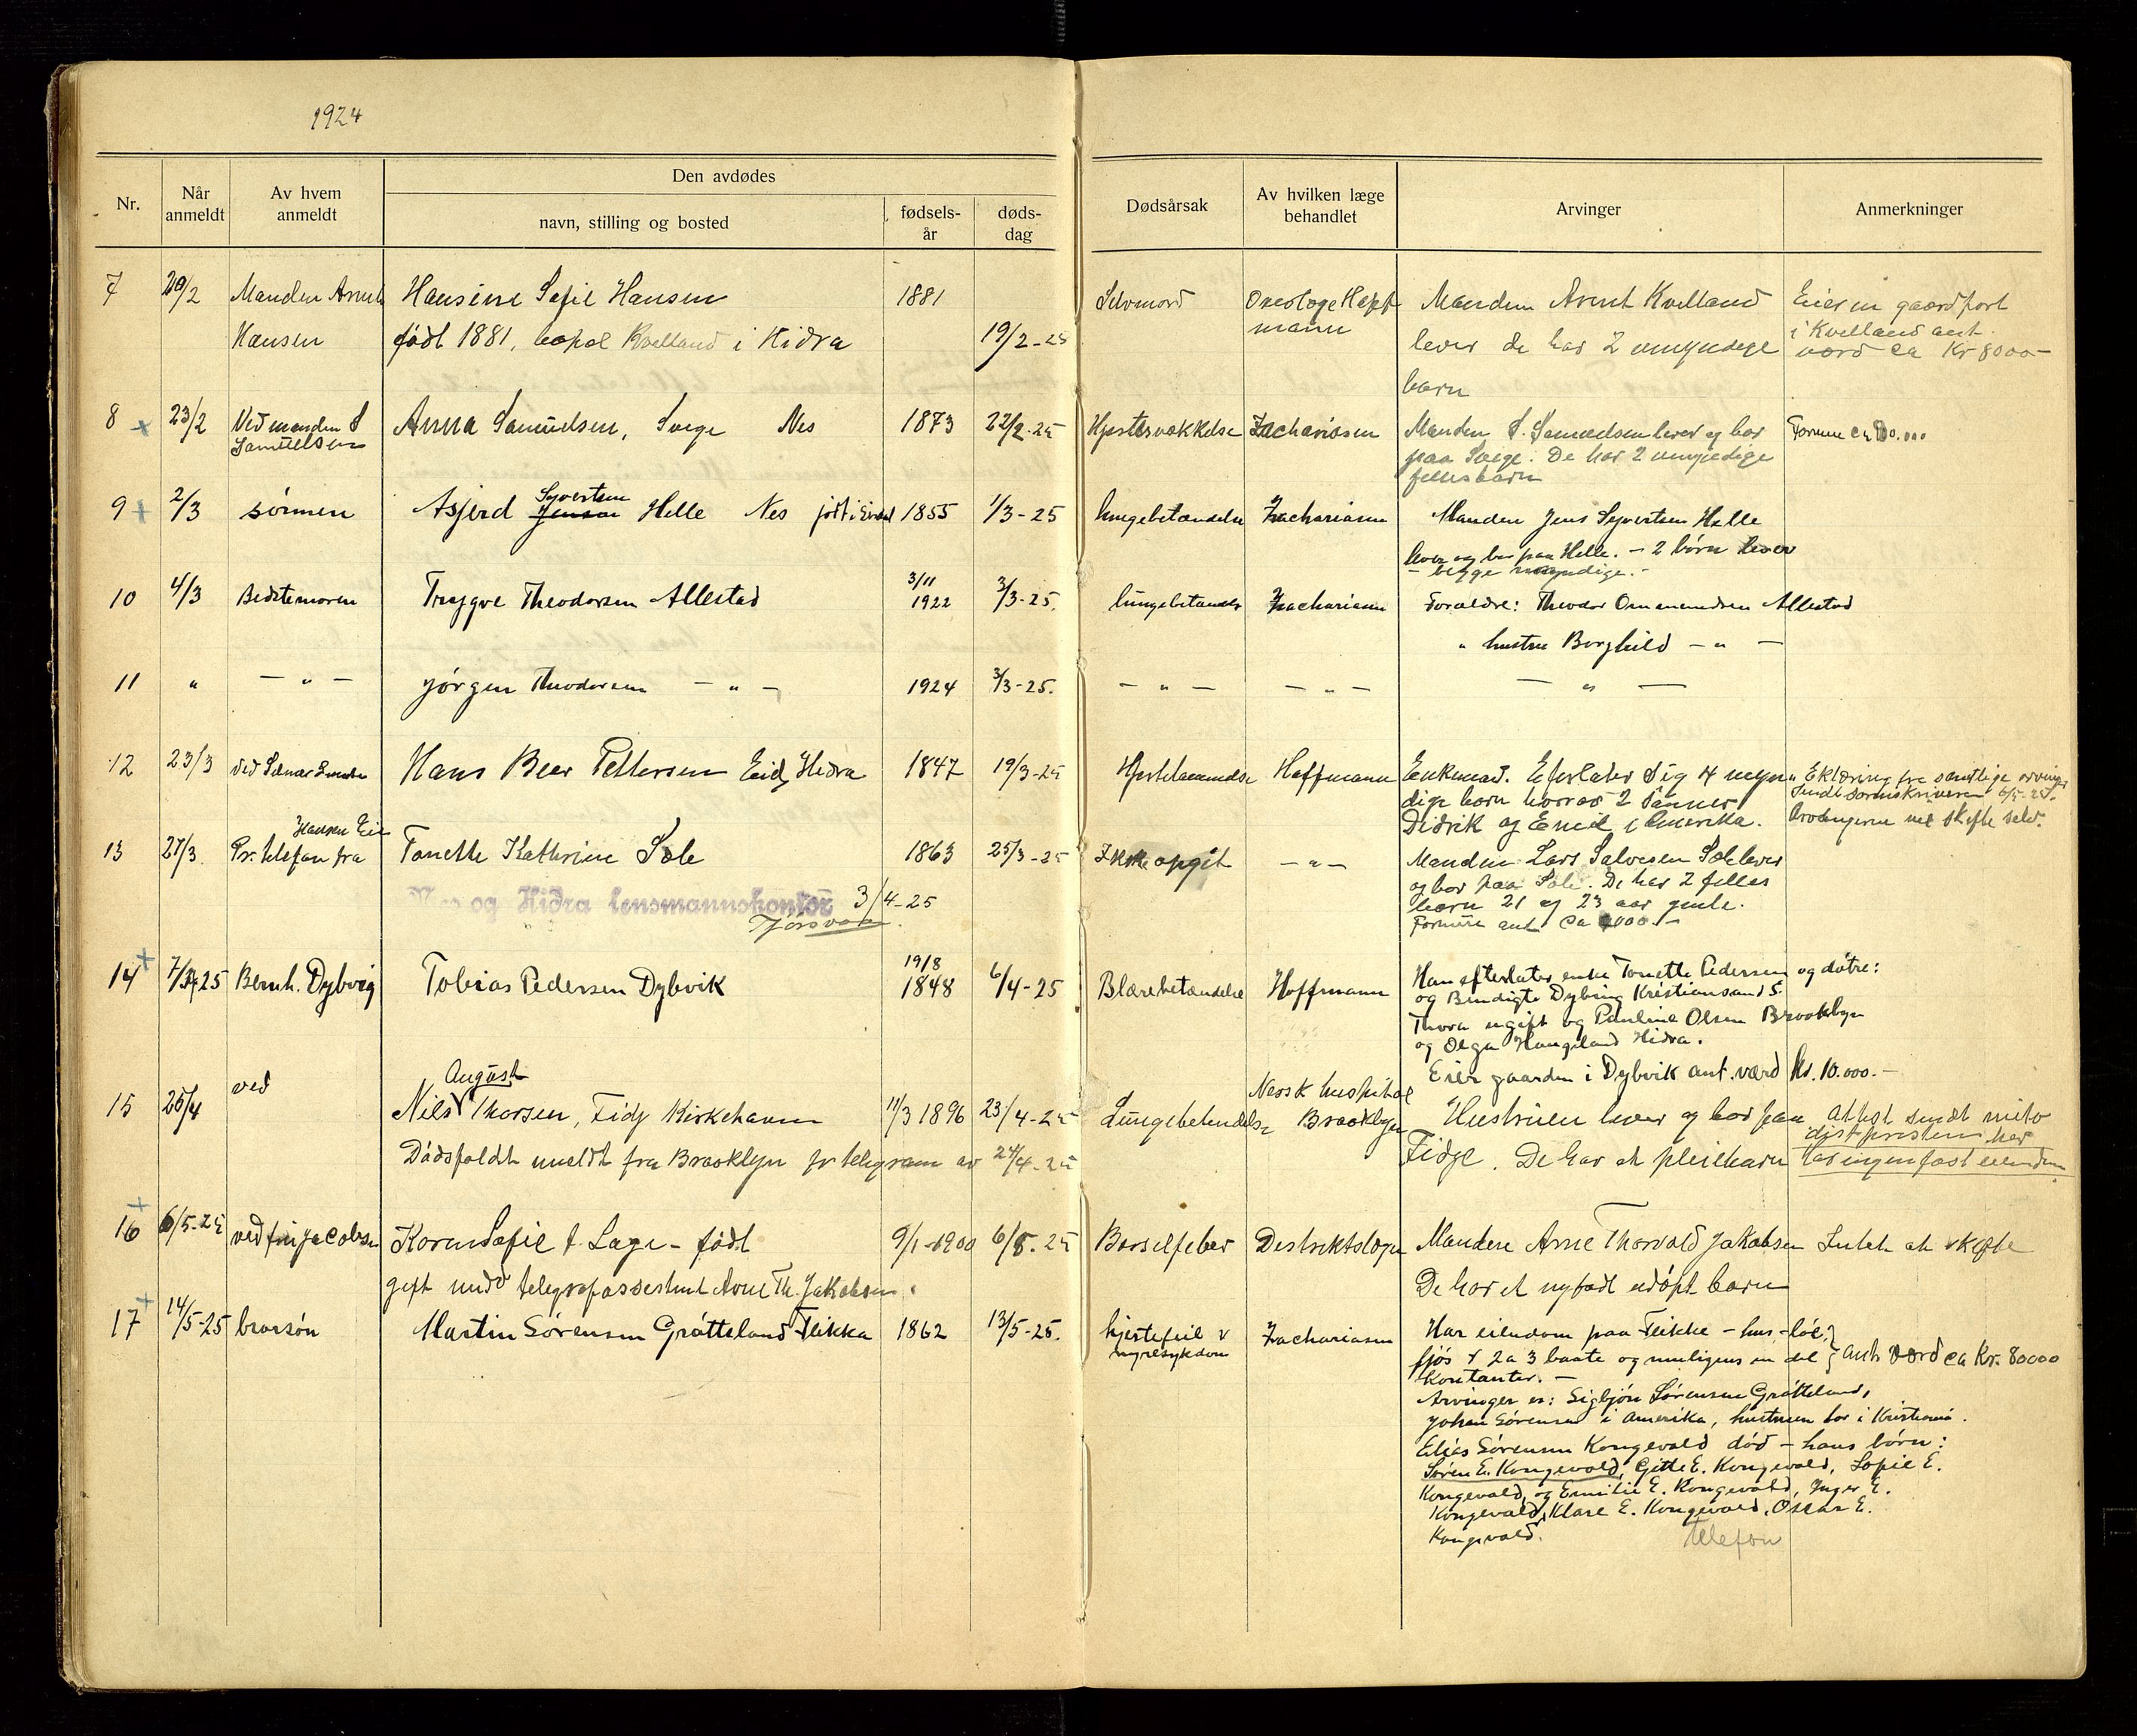 1924
Nr.
Når anmeldt
Av hvem anmeldt
Den avdødes
navn, stilling og bosted
fødsels-år
døds-dag
Dødsårsak
Av hvilken læge behandlet
Arvinger
Anmerkninger
7 20/2 Manden Arent Hansine Sofie Hansen 1881 Selvmord Manden Arent Kvelland Eier en gaardpart
Hansen født 1881, bopæl Kvelland i Hidra 19/2-25 mann lever de har 2 umyndige i Kvelland ant.
værd ca Kr 8000-
barn
8 23/2 Ved manden S Anna Samuelsen, Svege Nes 1873 22/2-25 Hjertesvækkelse Zachariasen Manden S. Samuelsen lever og bor Formue ca
Samuelsen paa Svege. De har 2 umyndige
fellesbarn
9 2/3 sønnen Asjerd Jensen Syvertsen Helle Nes født i 1855 1/3-25 lungebetændelse Zachariasen Manden Jens Syvertsen Helle
lever og bor paa Helle. - 2 børn lever
begge myndige.-
10 4/3 Bedstemoren Trygve Theodorsen Allestad 3/11 1922 3/3-25. lungebetændelse Zachariasen Forældre: Theodor Ommundsen Allestad
" hustru Borghild - " -
11 " - " - Jørgen Theodorsen - " - 1924 3/3-25. - " - - " - - " -
12 23/3 ved Hans Beer Pettersen Eid, Hidra 1847 19/3-25 Hjertelammelse Hoffmann Enkemand. Efterlater sig 4 myn- Erklæring fra samtlige arvinger
dige barn hvorav 2 sønner sendt sorenskriveren 6/5-25.
Didrik og Emil i Amerika. Arvingerne vil skifte selv.
Hansen Eie
13 27/3. Pr. telefon fra Tonette Kathrine Sole 1863 25/3-25 Ikke opgit - " - Manden Lars Salvesen Sole lever
og bor paa Sole. De har 2 felles
Nes og Hidra lensmannskontor 3/4-25 barn 21 og 23 aar gamle.
Tjørsvaag. Formue ant ca
14 7/4 25 Bernh. Dybvig Tobias Pedersen Dybvik 19/8 1848 6/4-25 Blærebetændelse Hoffmann Han efterlater enke Tonette Pedersen og døtre:
og Bendigte Dybing Kristiansand S.
Thora ugift og Pauline Olsen Brooklyn
og Olga Haugeland Hidra.
Eier gaarden i Dybvik ant. værd kr. 10.000.-
15 25/4 ved Nils August Thorsen, Fidje Kirkehavn 11/3 1896 23/4-25 Lungebetendelse Norsk hospital Brooklyn Hustruen lever og bor paa Attest sendt
Dødsfaldet meldt fra Brooklyn pr telegram av 24/4-25 Fidje. De har et pleiebarn Har ingen fast eiendom
16 6/5-25 ved Jacobsen Karen Sofie f. Lage - født 9/1-1900 6/5-25 Barselfeber Destriktslægen Manden Arne Thorvald Jakobsen Intet at skifte
gift med telegrafassestent Arne Th. Jakobsen. De har et nyfødt udøpt barn
17 14/5-25 brorsøn Martin Sørensen Grøtteland Flikka 1862 13/5-25. hjertefeil & Zachariasen Har eiendom paa Flikke - hus-løe,
nyresykdom fjøs & 2 a 3 baate og muligens en del } ant. værd ca Kr. 80000
kontanter. -
Arvinger er: Sigbjørn Sørensen Grøtteland,
Johan Sørensen i Amerika, hustruen bor i Kristiania.
Elias Sørensen Kongevold død - hans børn:
Søren E. Kongevold, Gitte E. Kongevold, Sofie E.
Kongevold, og Emilie E. Kongevold, Inger E.
Kongevold, Klare E. Kongevold, Oscar E.
Kongevold.
telefon